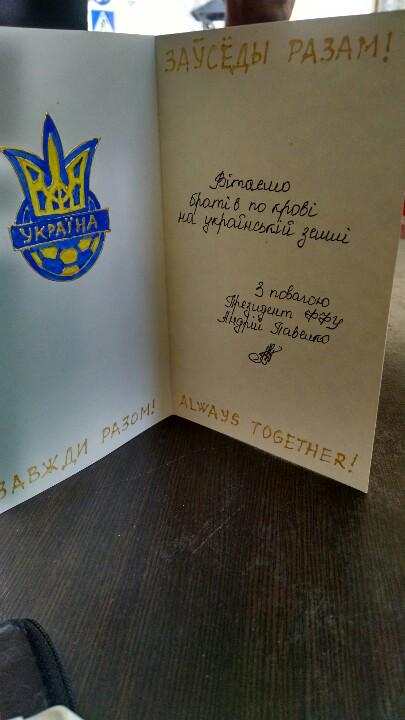 УКРАЇНА
ЗАВЖДИ РАЗОМ!
ЗАЎСЁДЫ РАЗАМ!
Вітаємо
братів по крові
на українській землі
З повагою
Президент ФФУ
Андрій Павелко
ALWAYS TOGETHER!